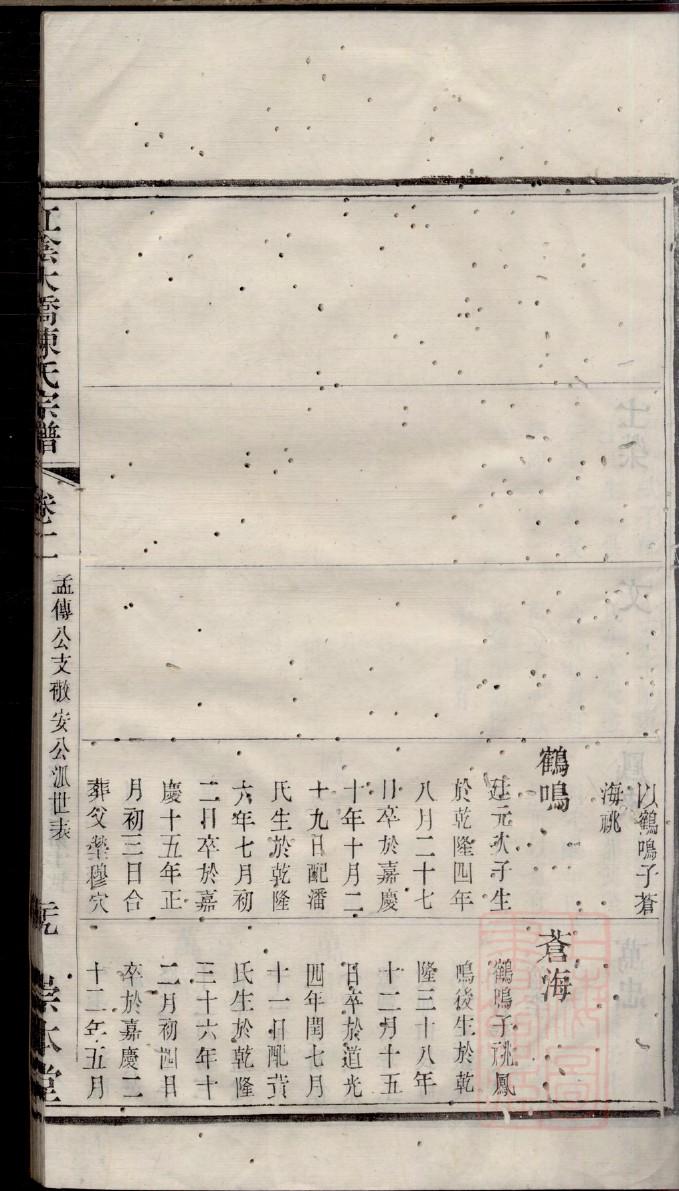 以鶴鳴子蒼
海祧
鶴鳴
廷元次子生
於乾隆四年
八月二十七
日卒於嘉慶
十年十月二
十九日配潘
氏生於乾隆
六年七月初
二日卒於嘉
慶十五年正
月初三日合
葬父塋穆穴
蒼海
鶴鳴子祧鳳
鳴後生於乾
隆三十八年
十二月十五
日卒於道光
四年閏七月
十一日配黃
氏生於乾隆
三十六年十
二月初四日
卒於嘉慶二
十二年五月
江陰大橋陳氏宗譜
卷二
孟傳公支敬安公派世表
崇本堂